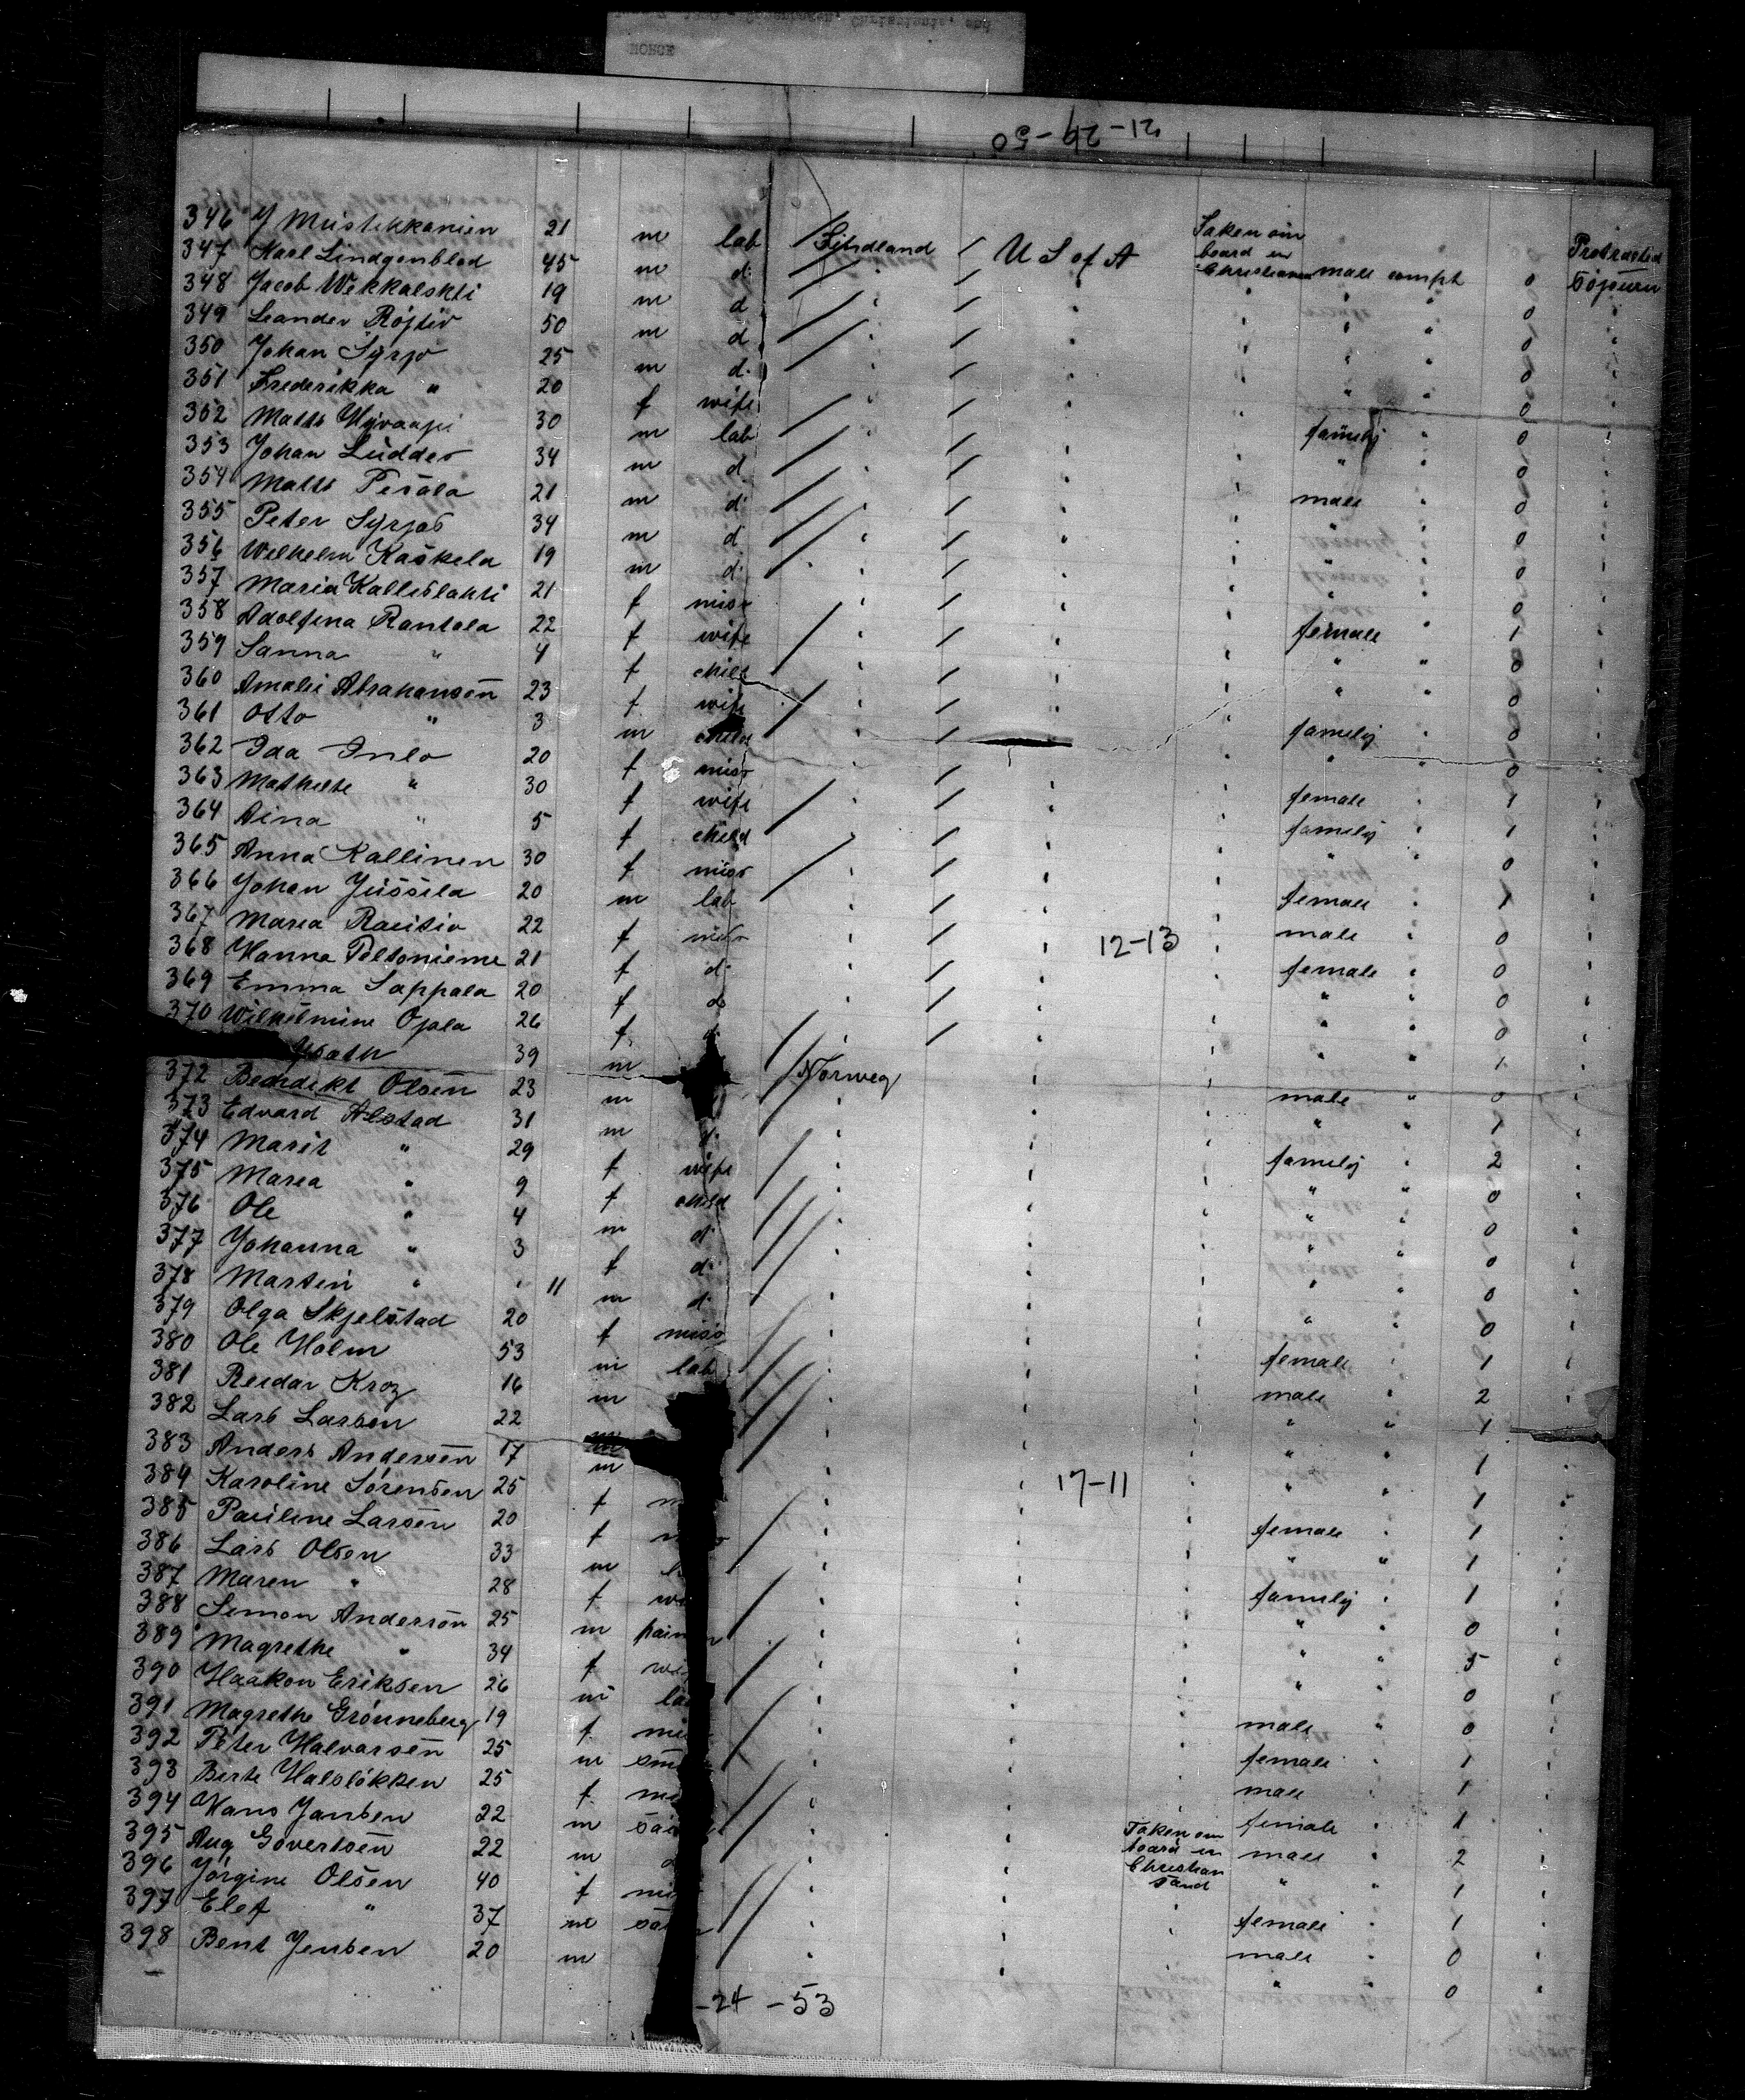 NORGE
21-29-50
346 Y Mustikkanien 21 m lab Finland U S of A Taken on board in Christiania male compt 0 Protracted Sojourn
347 Karl Lindgenblad 45 m d " " " " 0 "
348 Jacob Wekkalskti 19 m d " " " " 0 "
349 Leander Röjtiö 50 m d " " " " 0 "
350 Johan Syrjo 25 m d " " " " 0 "
351 Frederikka " 20 f wife " " family " 0 "
352 Matts Hyvaapi 30 m lab " " " " 0 "
353 Johan Ludder 34 m d " " male " 0 "
354 Matts Pesola 21 m d " " " " 0 "
355 Peter Syrjas 34 m d " " " " 0 "
356 Wilhelm Kaskela 19 m d " " " " 0 "
357 Maria Kallislahti 21 f miss " " female " 1 "
358 Adolfina Rantala 22 f wife " " " " 0 "
359 Sanna " 4 f child " " " " 0 "
360 Amalie Abrahamsen 23 f wife " " family " 0 "
361 Otto " 3 m child " " " " 0 "
362 Ida Inlo 20 f miss " " female " 1 "
363 Mathilde " 30 f wife " " family " 1 "
364 Aina " 5 f child " " " " 0 "
365 Anna Kallinen 30 f miss " " female " 1 "
366 Johan Jussila 20 m lab " " male " 0 "
367 Maria Rautio 22 f miss " 12-13 " female " 0 "
368 Hanna Peltonieme 21 f d " " " " 0 "
369 Emma Sappala 20 f do " " " " 0 "
370 Wilhelmine Ojala 26 f d " " " " 1 "
39 m Norweg " " male " 0 "
372 Benedikt Olsen 23 m " " " " 1 "
373 Edvard Alstad 31 m d " " family " 2 "
374 Marit " 29 f wife " " " " 0 "
375 Maria " 9 f child " " " " 0 "
376 Ole " 4 m d " " " " 0 "
377 Johanna " 3 f d " " " " 0 "
378 Martin " " 11 m d " " " " 0 "
379 Olga Skjelstad 20 f miss " " female " 1 "
380 Ole Holm 53 m lab " " male " 2 "
381 Reidar Krog 16 m " " " " 1 "
382 Lars Larsen 22 m " " " " 1 "
383 Anders Andersen 17 m " 17-11 " " " 1 "
384 Karoline Sørensen 25 f m " " female " 1 "
385 Pauline Larsen 20 f m " " " " 1 "
386 Lars Olsen 33 m l " " family " 1 "
387 Maren " 28 f wi " " " " 0 "
388 Simon Anderson 25 m pain " " " " 5 "
389 Magrethe " 34 f wi " " " " 0 "
390 Haakon Eriksen 26 m la " " male " 0 "
391 Magrethe Grönneberg 19 f mi " " female " 1 "
392 Peter Halvarsen 25 m smi " " male " 1 "
393 Berte Halsløkken 25 f mi " " female " 1 "
394 Hans Jansen 22 m sai " Taken on board in Christiansand male " 2 "
395 Aug Govertsen 22 m " " " " 1 "
396 Jörgine Olsen 40 f mi " " female " 1 "
397 Elef " 37 m sai " " male " 0 "
398 Bent Jensen 20 m " " " " 0 "
-24 -53